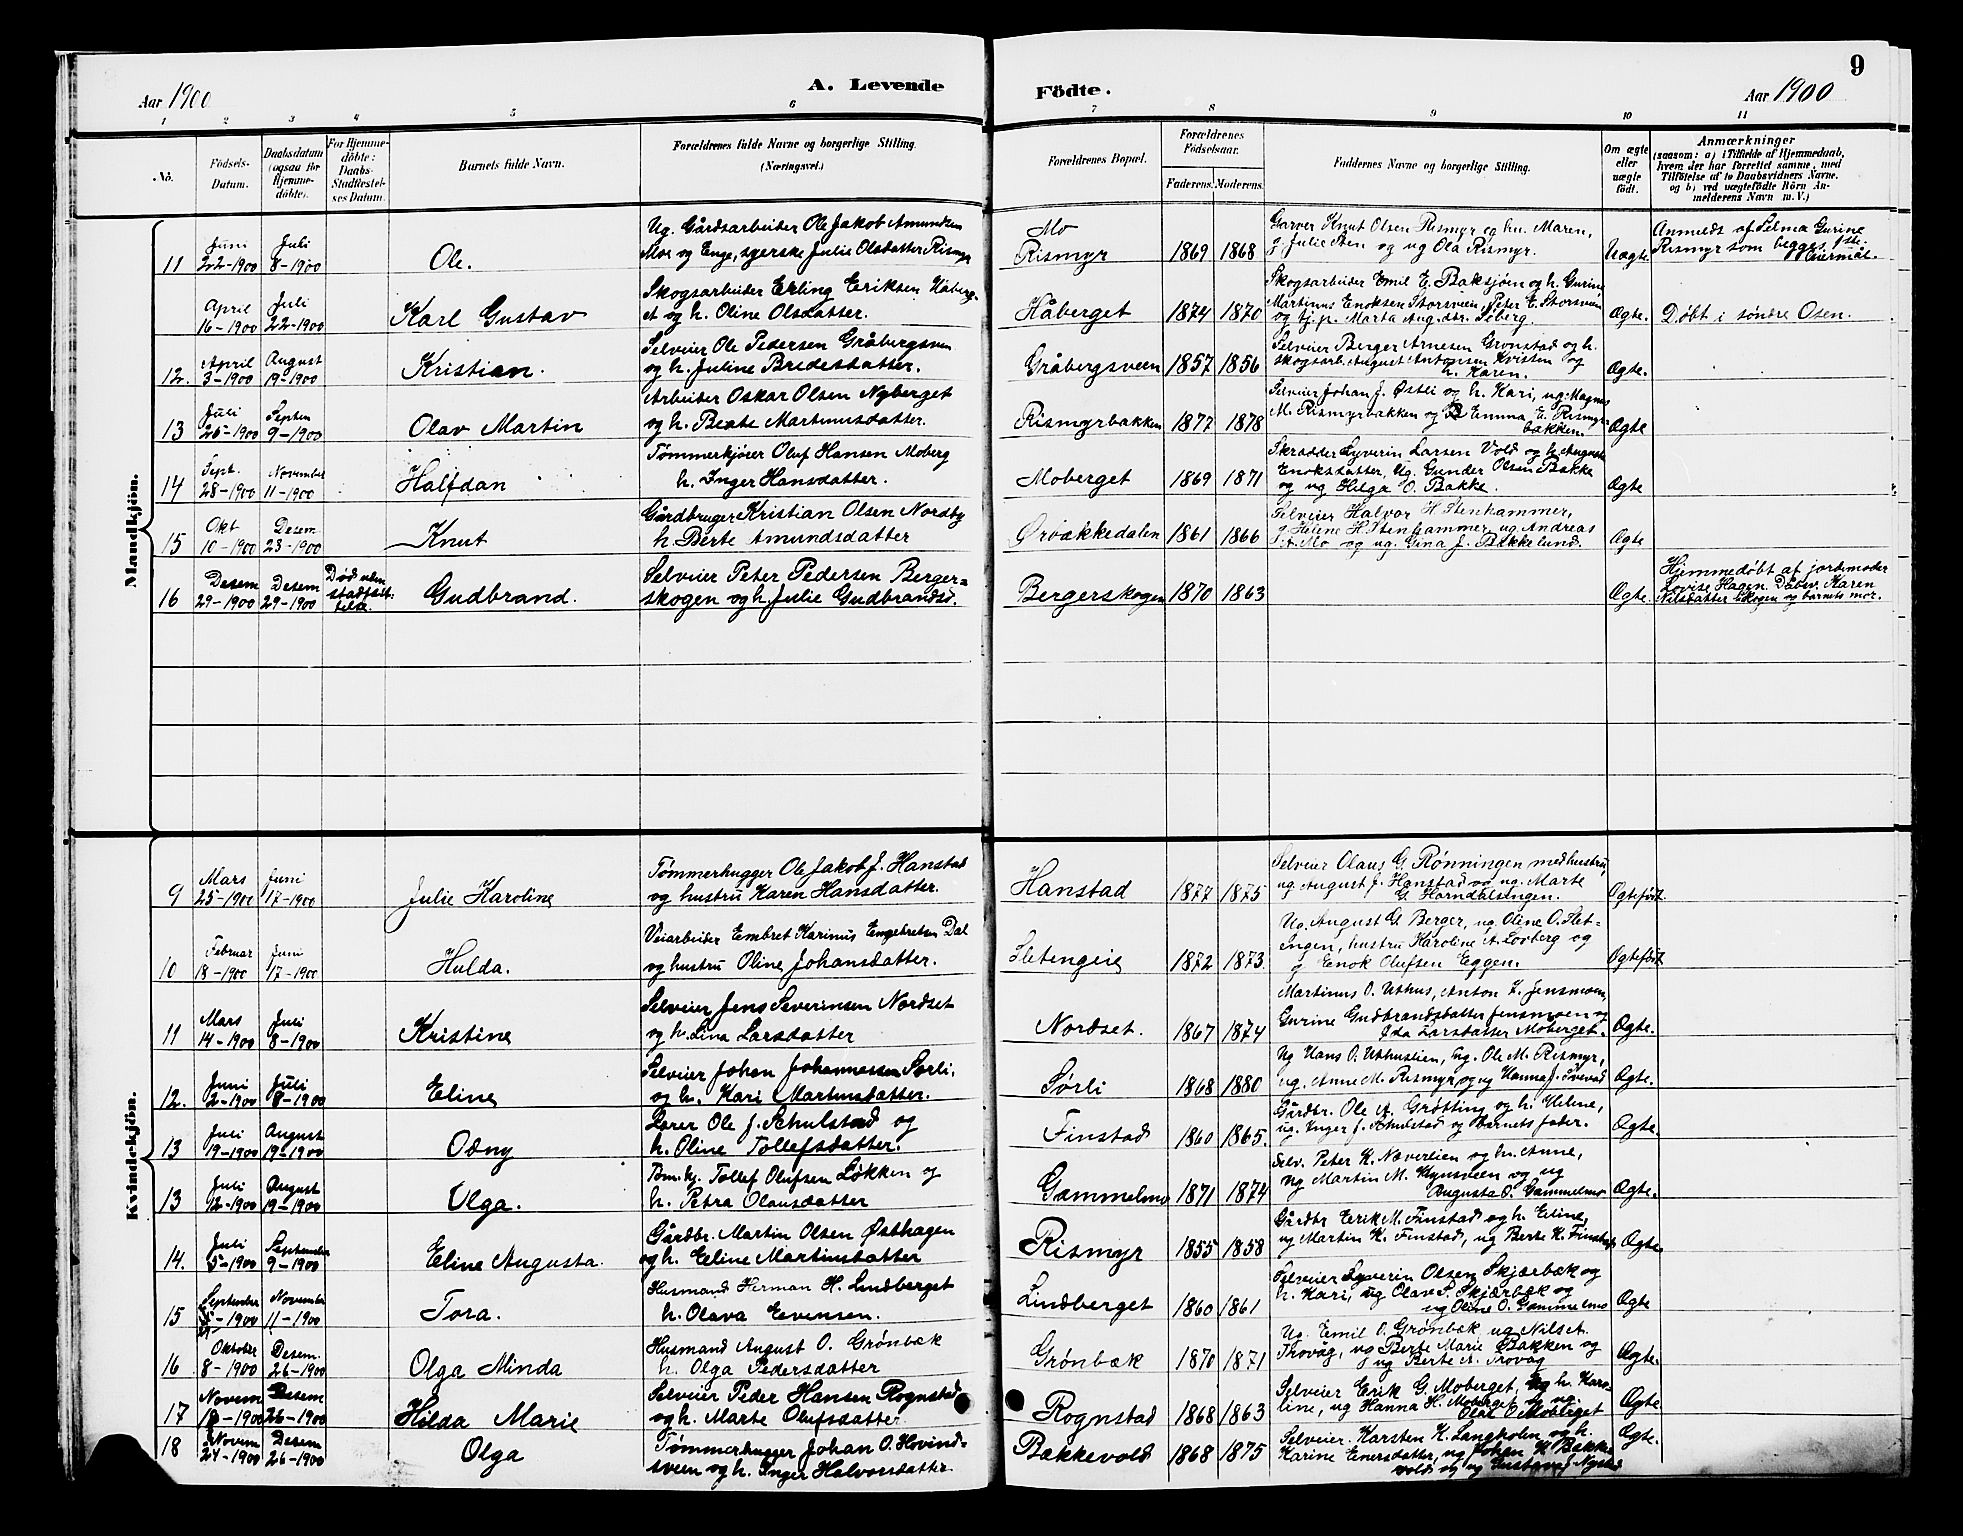 Aar 1900
A. Levende
Födte.
Aar 1900
9
1 2 3 4 5 6 7 8 9 10 11
No.
Födsels-
Datum.
Daabsdatum
(ogsaa for
Hjemme-
döbte).
For Hjemme-
döbte:
Daabs-
Stadfæstel-
ses Datum.
Barnets fulde Navn.
Forældrenes fulde Navne og borgerlige Stilling.
(Næringsvei.)
Forældrenes Bopæl.
Forældrenes
Födselsaar.
Faderens. Moderens.
Faddernes Navne og borgerlige Stilling.
Om ægte
eller
uægte
födt.
Anmærkninger
(saasom: a) i Tilfælde af Hjemmedaab,
hvem der har forrettet samme, med
Tilföielse af to Daabsvidners Navne.
og b) ved uægtefödte Börn An-
melderens Navn m. V.)
Mandkjön.
11
Juni
22-1900
Juli
8-1900
Ole.
Ug. Gårdsarbeider Ole Jakob Amundsen
Moe og Enge, sgerske Julie Olsdatter Rismyr
Mo
Rismyr
1869 1868
Garver Knut Olsen Rismyr og hu. Maren,
g. Julie Sten og ug Ola Rismyr.
Uægte
Anmeldt af Selma Gurine
Rismyr som begges 1ste
leiermål.
April
16-1900
Juli
22-1900
Karl Gustav
Skogsarbeider Erling Eriksen Håberg-
et og h. Oline Olsdatter.
Håberget
1874 1870
Skogsarbeider Emil E. Baksjøen og h. Gurine
Martinus Enoksen Storsveen, Peter E. Storsveen
og tj.p. Marta Aug.dtr. Søberg.
Ægte.
Døbt i søndre Osen.
12.
April
3-1900
August
19-1900
Kristian.
Selveier Ole Pedersen Gråbergsveen
og h. Juline Bredesdatter.
Gråbergsveen
1857 1856
Selveier Berger Arnesen Grønstad og h.
skogsarb. August Antonsen Kvisten og
h. Karen.
Ægte.
13
Juli
26-1900
Septem
9-1900
Olav Martin
Arbeider Oskar Olsen Nyberget
og h. Beate Martinusdatter.
Rismyrbakken
1877 1878
Selveier Johan J. Østli og h. Kari, ug. Magnus
M. Rismyrbakken og Emma E. Rismyr-
bakken.
Ægte
14
Sept.
28-1900
November
11-1900
Halfdan
Tømmerkjører Oluf Hansen Moberg
h. Inger Hansdatter.
Moberget
1869 1871
Skrædder Syverin Larsen Vold og h. Auguste
Enoksdatter, Ug. Gunder Olsen Bakke
og ug Hilga O. Bakke.
Ægte
15
Okt
10-1900
Desem
23-1900
Knut
Gårdbruger Kristian Olsen Nordby
h. Berte Amundsdatter
Ørbækkedalen
1861 1866
Selveier Halvor H Stenhammer,
g. Helene H. Stenhammer, ug. Andreas
A. Mo og ug. Gina J. Bakkelund.
Ægte
16
Desem
29-1900
Desem
29-1900
Død uden
stadfæst-
telse
Gudbrand.
Selveier Peter Pedersen Berger=
skogen og h. Julie Gudbrandsd.
Bergerskogen
1870 1863
Ægte.
Hjemmedøbt af jordemoder
Lovise Hagen. Dåbsv. Karen
Nilsdatter Skogen og barnets mor.
Kvindekjön.
9
Mars
25-1900
Juni
17-1900
Julie Karoline
Tømmerhugger Ole Jakob J. Hanstad
og hustru Karen Hansdatter.
Hanstad
1877 1875
Selveier Olaus G. Rønningen med hustru,
ug. August J. Hanstad og ug. Marte
G. Horndalsengen.
Ægtefödt
10
Februar
18-1900
Juni
17-1900
Hulda.
Veiarbeider Embret Karinus Engebretsen Dal
og hustru Oline Johansdatter.
Sletengeie
1872 1873.
Ug. August G. Berger, ug Oline O. Slet-
Ingen, hustru Karoline A. Lovberg og
g. Enok Olufsen Eggen.
Ægtefödt
11
Mars
14-1900
Juli
8-1900
Kristine
Selveier Jens Severinsen Nordset
og h. Lina Larsdatter
Nordset.
1867 1874
Martinus O. Uthus, Anton K. Jensmoen,
Gurine Gudbrandsdatter Jensmoen og
Ida Larsdatter Moberget.
Ægte.
12.
Juni
2-1900
Juli
8-1900
Eline
Selveier Johan Johannessen Sørli.
og h. Kari Martinsdatter.
Sørli
1868 1880
Ug Hans O. Uthuslien, Ug. Ole M. Rismyr,
ug. Anne M. Rismyr og ug Hanna J.
Ægte.
13
Juli
19-1900
August
19-1900
Odny
Lærer Ole J. Schulstad og
h. Oline Tollefsdatter.
Finstad
1860 1865.
Gårdbr. Ole A. Grøtting og h. Helene,
ug. Inger J. Schulstad og barnets fader.
Ægte.
13
Juli
12-1900
August
19-1900
Olga.
Tøm.kj. Tollef Olufsen Løkken og
h. Petra Olausdatter
Gammelmo
1871 1874
Selv. Peter K. Næverlien og h. Anne,
Ug Martin M. Mynsveen og ug
Augusta O. Gammelmo
Ægte.
14.
Juli
5-1900
September
9-1900
Eline Augusta.
Gårdbr. Martin Olsen Østhagen
og h. Eeline Martinsdatter
Rismyr
1855 1858
Gårdbr Erik M. Finstad og h. Eline,
ug Martin K. Finstad, ug Berte K. Finstad
Ægte
15
September
-1900
November
11-1900
Tora.
Husmand Herman H. Lindberget
h. Olava Evensen.
Lindberget
1860 1861
Selveier Syverin Olsen Skjærbæk og
h. Kari, ug Olav S. Skjærbæk og
ug Oline O. Gammelmo
Ægte
16
Oktober
8-1900
Desem.
26-1900
Olga Minda
Husmand August O. Grønbæk
h. Olga Pedersdatter
Grønbæk
1870 1871
Ug. Emil O. Grønbæk ug Nils et.
Trovåg, ug Berte Marie Bakken og
ug Berte A. Trovåg
Ægte.
17
Novem
18-1900
Desem
26-1900
Hilda Marie
Selveier Peder Hansen Rognstad
og h. Marte Olufsdatter
Rognstad
1868 1863
Selveier Erik G. Moberget, og h. Karo-
line, ug Hanna H. Moberget og ug
Olae O Moberget
Ægte
18
Novem
24-1900
Desem
26-1900
Olga
Tømmerhugger Johan O. Hovind=
sveen og h. Inger Halvorsdatter.
Bækkevold
1868 1875
Selveier. Karsten K. Langholen og h.
Karine Enersdatter, ug Johan K Bække
vold og ug Gustava J. Nystad
Ægte.